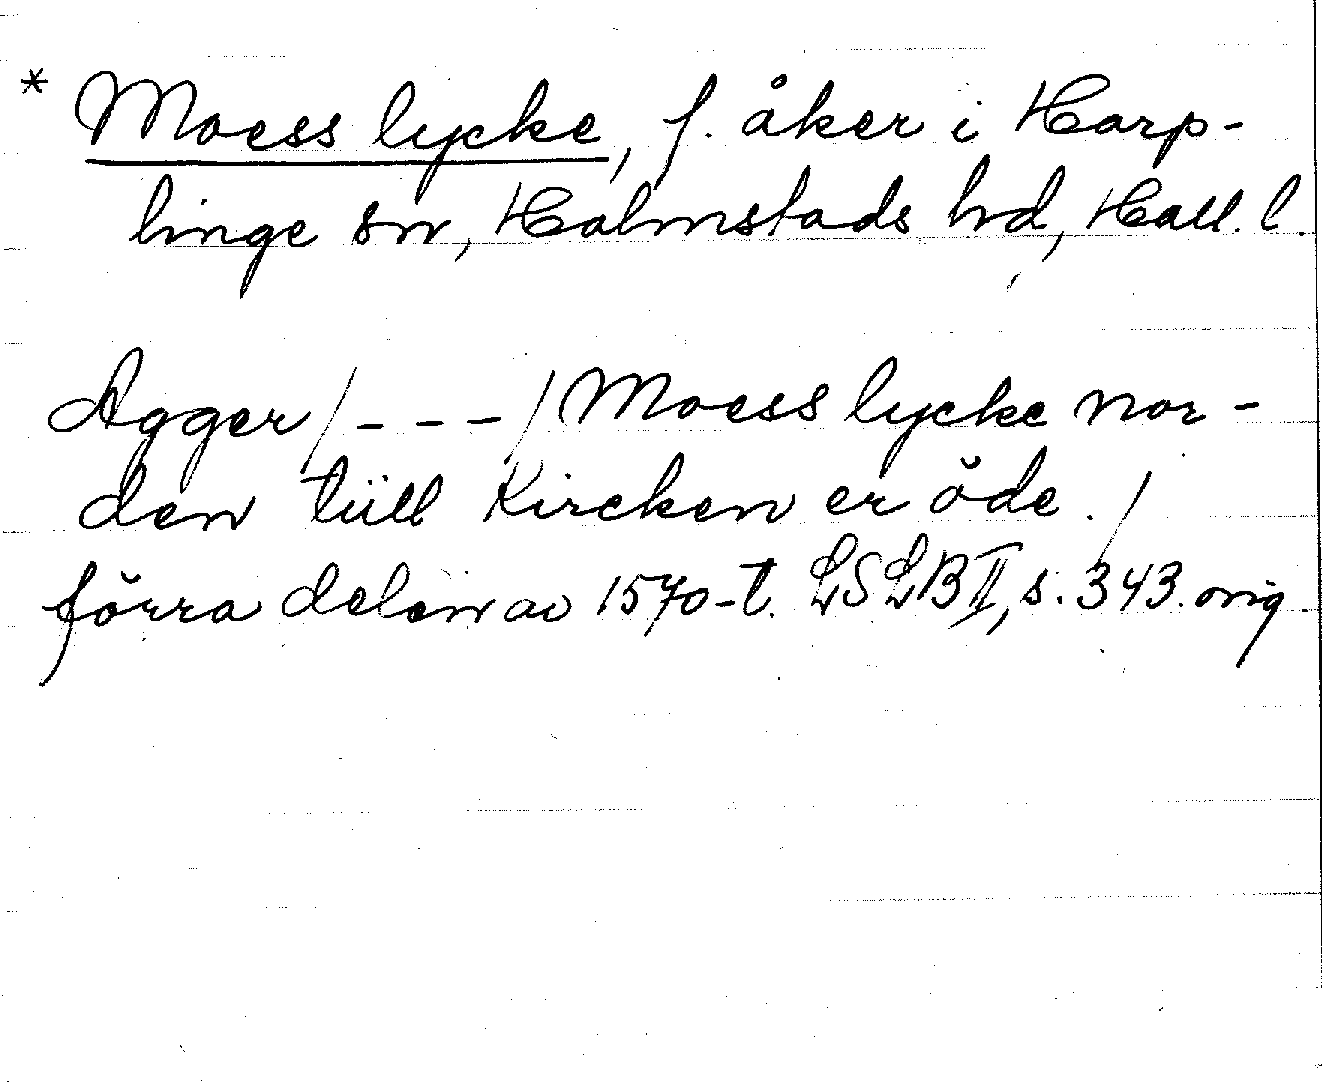 * Moess lycke, f. åker i Harp-
linge sn, Halmstads hd, Hall. l.
Agger /---/ Moess lycke nor-
den tüll Kircken er öde. /
förra delen av 1570-t. LSLB II, s. 343. orig.